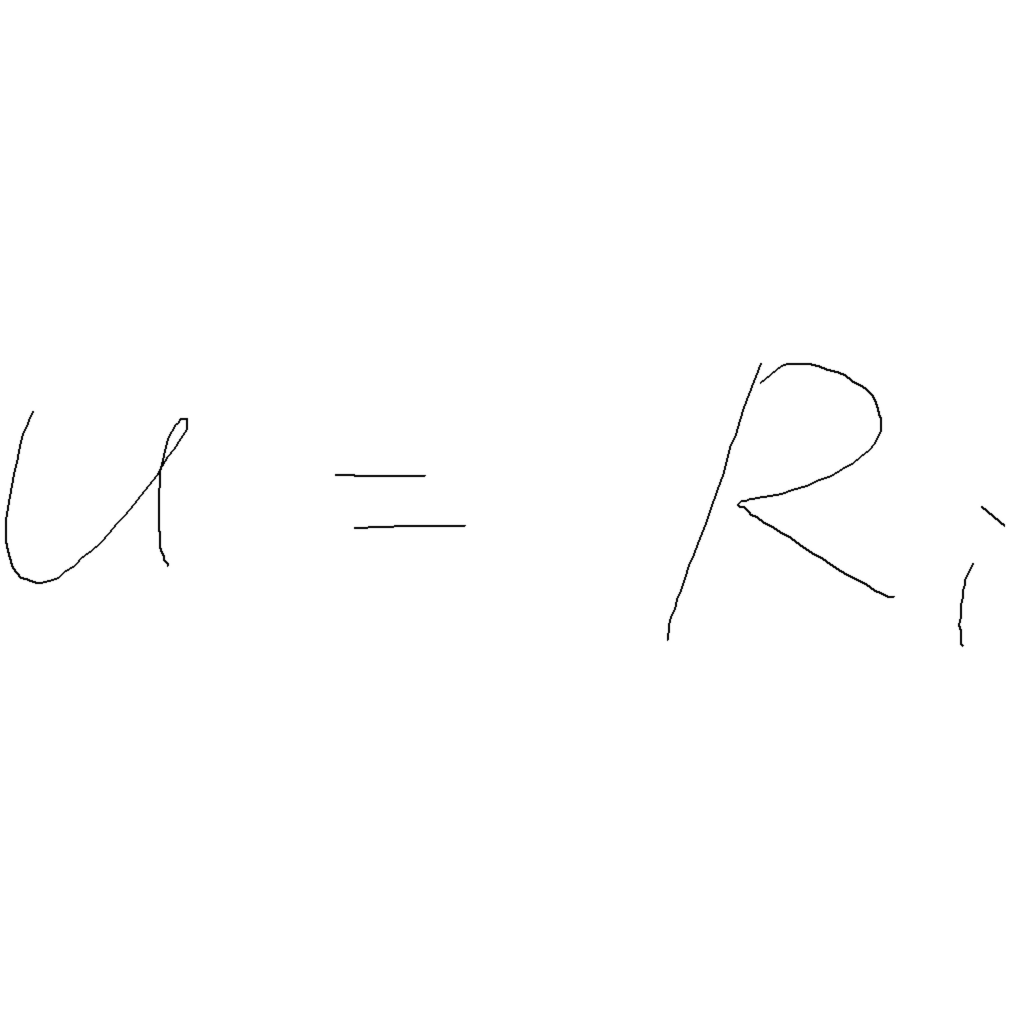 u = Ri